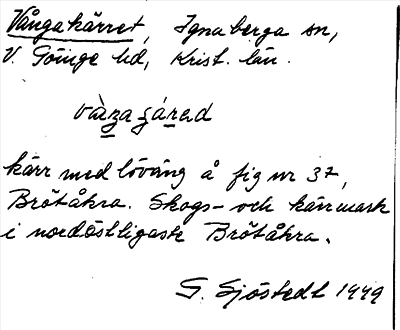 Vångakärret, Ignaberga sn,
V. Göinge hd, Krist. län.
kärr med löväng å fig nr 37,
Brötåkra. Skogs- och kärrmark
i nordöstligaste Brötåkra.
G. Sjöstedt 1949